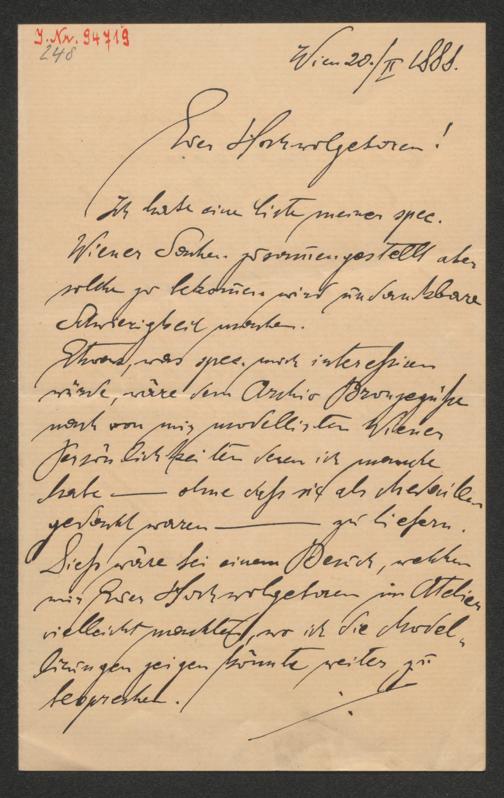 I. Nr. 94719
248
Wien 20./II 1888.
Euer Hochwolgeboren!
Ich habe eine Liste meiner spec.
Wiener Sachen zusammengestellt aber
solche zu bekommen wird undankbare
Schwierigkeit machen.
Etwas, was spec. mich interessieren
würde, wäre dem Archiv Bronzegüsse
nach von mir modellirten Wiener
Persönlichkeiten deren ich manche
habe — ohne daß sie als Medaillen
gedacht waren — zu liefern.
Dieß wäre bei einem Besuch, welchen
mir Euer Hochwolgeboren im Atelier
vielleicht machten, wo ich die Model-
lirungen zeigen könnte weiter zu
besprechen.